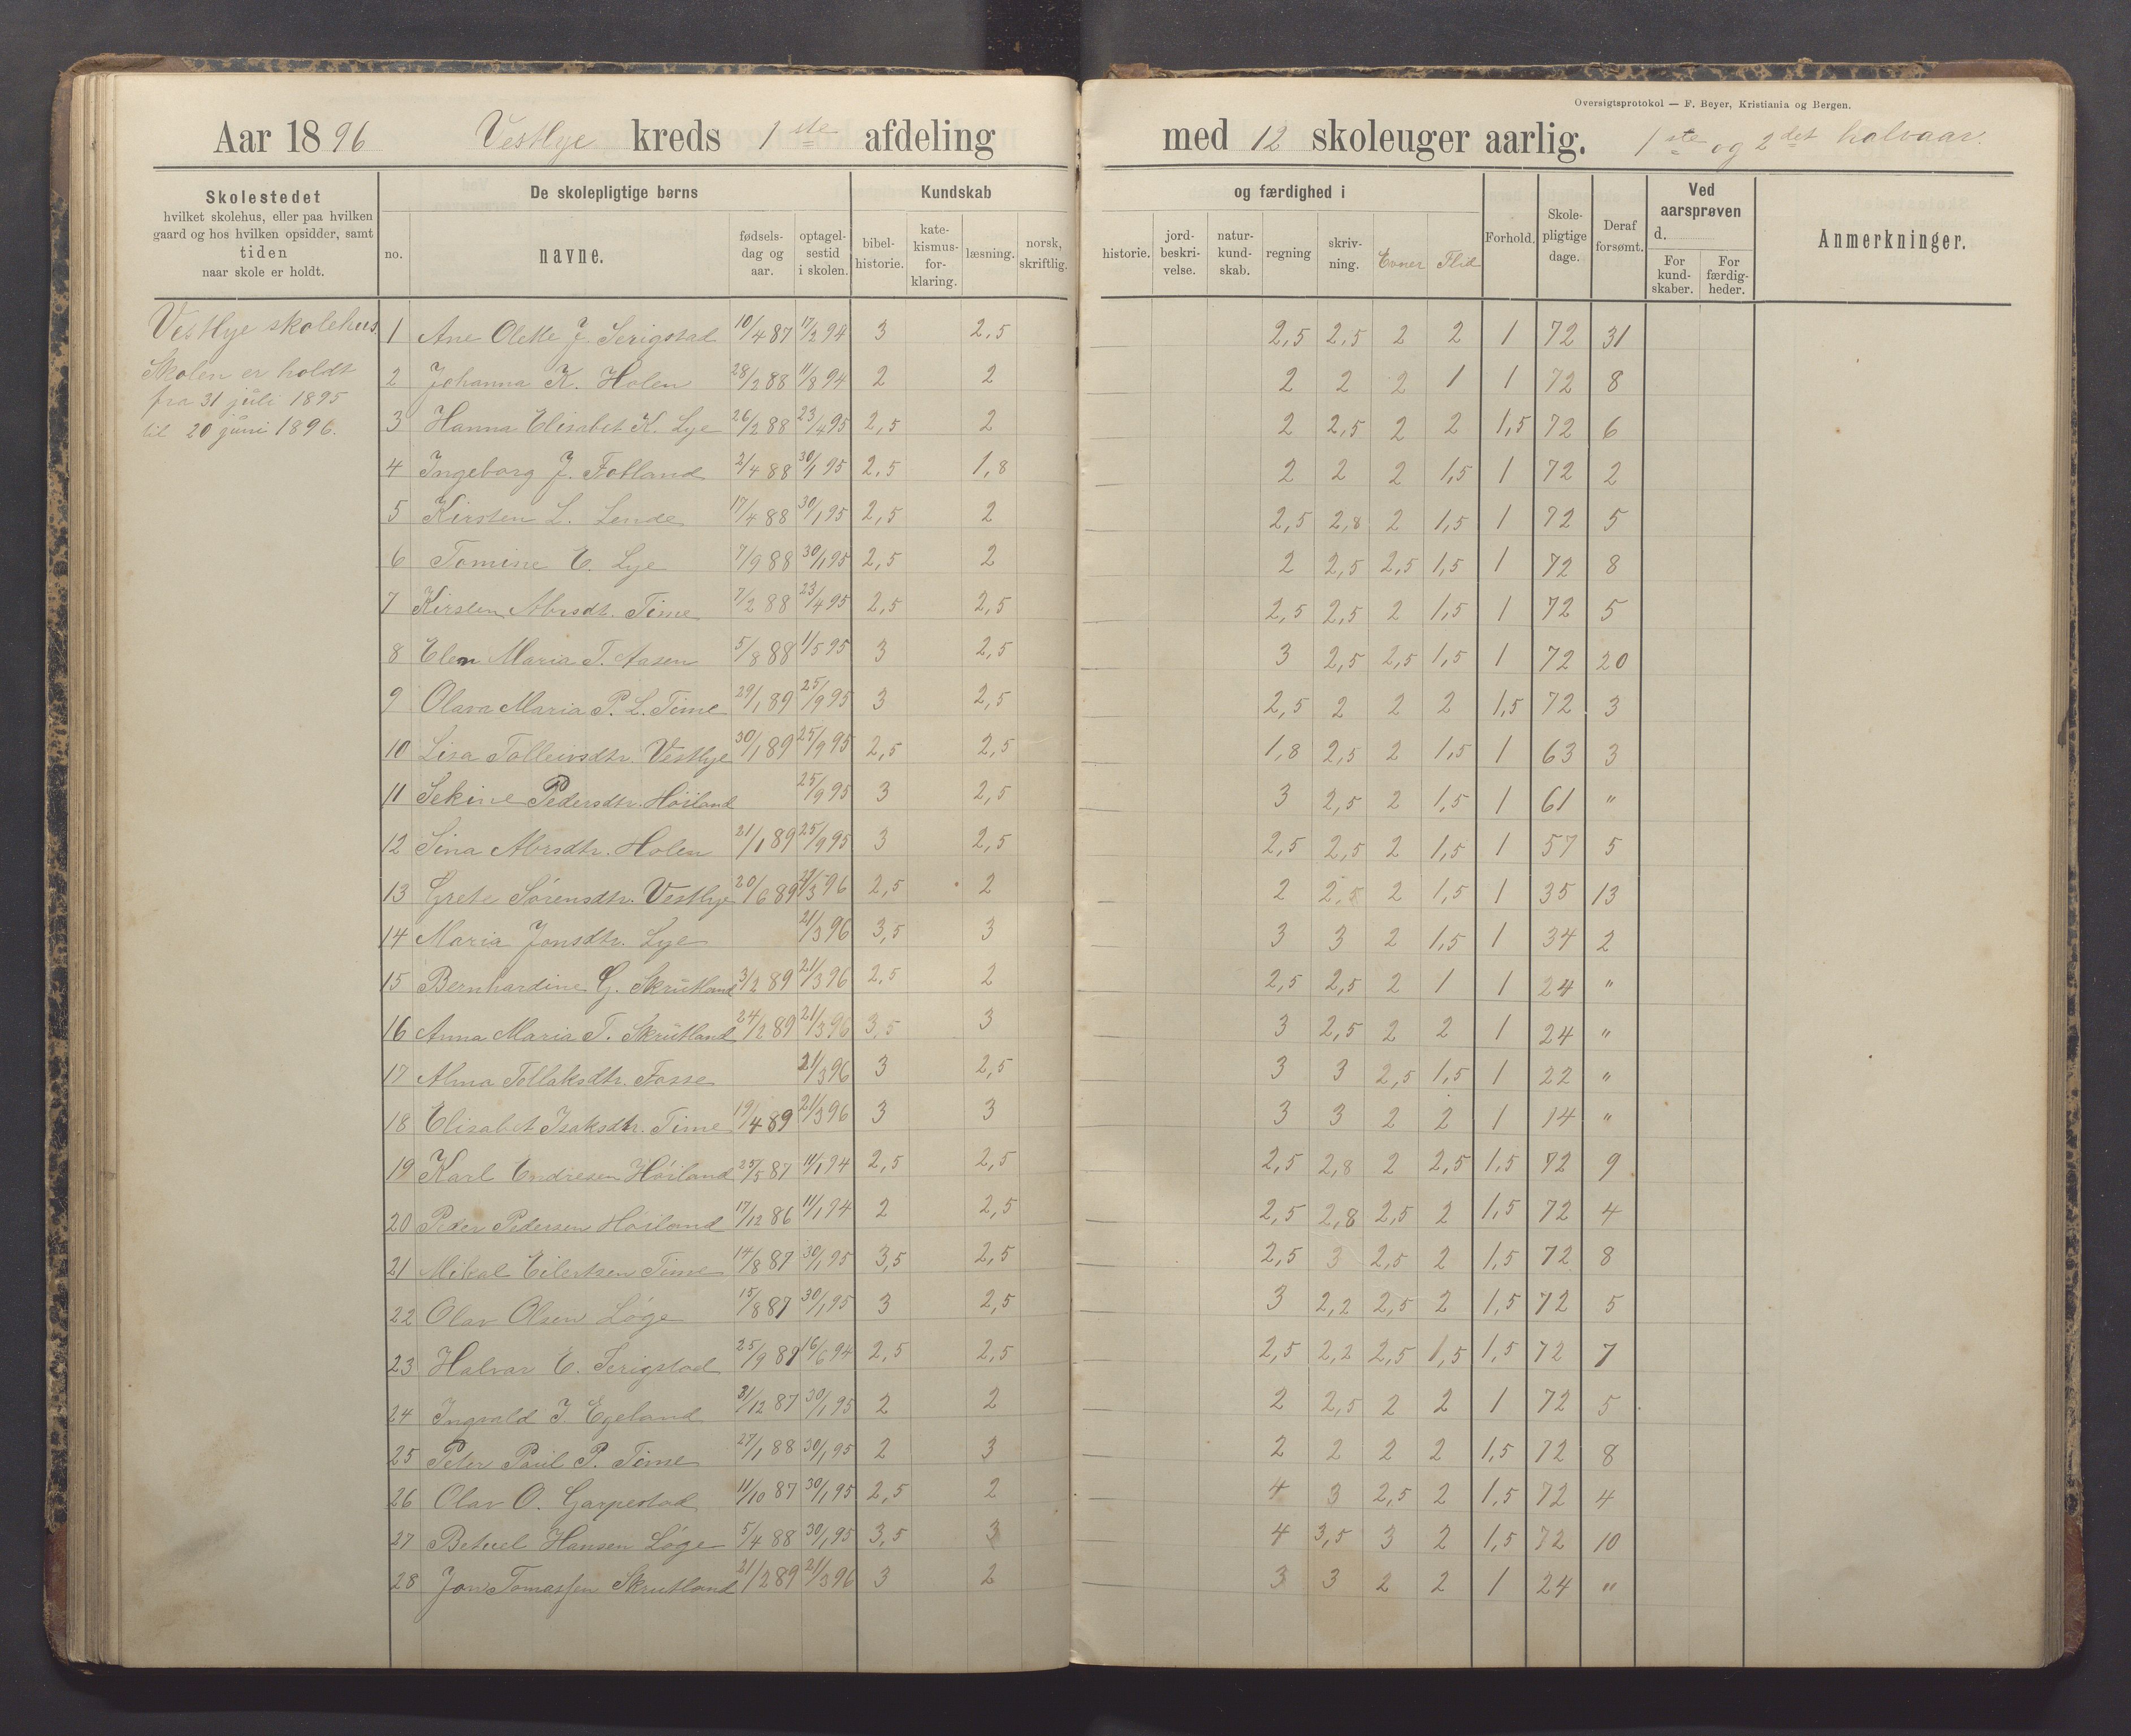 Oversigtsprotokol — F. Beyer, Kristiania og Bergen.
Aar 1896 Vestlye kreds 1ste afdeling med 12 skoleuger aarlig. 1ste og 2det halvaar.
Skolestedet
hvilket skolehus, eller paa hvilken
gaard og hos hvilken opsidder, samt
tiden
naar skole er holdt.
De skolepligtige børns
no. navne. fødsels-dag og aar. optagel-sestid i skolen.
Kundskab og færdighed i
bibel-historie. kate-kismus-for-klaring. læsning. norsk, skriftlig. historie. jord-beskri-velse. natur-kund-skab. regning skriv-ning. Evner Flid
Forhold. Skole-pligtige dage. Deraf forsømt.
Ved aarsprøven d.
For kund-skaber. For færdig-heder.
Anmerkninger.
Vestlye skolehus.
Skolen er holdt
fra 31 juli 1895
til 20 juni 1896.
1 Ane Olette J. Serigstad 10/4 87 17/2 94 3 2,5 2,5 2,5 2 2 1 72 31
2 Johanna K. Holen 28/2 88 11/8 94 2 2 2 2 2 1 1 72 8
3 Hanna Elisabet K. Lye 26/2 88 23/4 95 2,5 2 2 2,5 2 2 1,5 72 6
4 Ingeborg J. Fotland 2/4 88 30/1 95 2,5 1,8 2 2 2 1,5 1 72 2
5 Kirsten L. Lende 17/4 88 30/1 95 2,5 2 2,5 2,8 2 1,5 1 72 5
6 Tomine E. Lye 7/9 88 30/1 95 2,5 2 2 2,5 2,5 1,5 1 72 8
7 Kirsten Abrsdt. Time 7/2 88 23/4 95 2,5 2,5 2,5 2,5 2 1,5 1 72 5
8 Elen Maria T. Aasen 5/8 88 11/5 95 3 2,5 3 2,5 2,5 1,5 1 72 20
9 Olava Maria P. L. Time 29/1 89 25/9 95 3 2,5 2,5 2 2 2 1,5 72 3
10 Lisa Tolleivsdtr. Vestlye 30/1 89 25/9 95 2,5 2,5 1,8 2,5 2 1,5 1 63 3
11 Sekine Pedersdtr. Høiland 25/9 95 3 2,5 3 2,5 2 1,5 1 61 "
12 Sina Abrsdtr. Holen 21/1 89 25/9 95 3 2,5 2,5 2,5 2 1,5 1 57 5
13 Grete Sørensdtr. Vestlye 20/6 89 21/3 96 2,5 2 2 2,5 2 1,5 1 35 13
14 Maria Jonsdtr. Lye 21/3 96 3,5 3 3 3 2 1,5 1 34 2
15 Bernhardine G. Skrutland 3/2 89 21/3 96 2,5 2 2,5 2,5 2 1 1 24 "
16 Anna Maria T. Skrutland 24/2 89 21/3 96 3,5 3 3 2,5 2 2 1 24 "
17 Alma Tollaksdtr. Fosse 21/3 96 3 2,5 3 3 2,5 1,5 1 22 "
18 Elisabet Isaksdtr. Time 19/4 89 21/3 96 3 3 3 3 2 2 1 14 "
19 Karl Endresen Høiland 25/5 87 11/1 94 2,5 2,5 2,5 2,8 2 2,5 1,5 72 9
20 Peder Pedersen Høiland 17/12 86 11/1 94 2 2,5 2,5 2,8 2,5 2 1,5 72 4
21 Mikal Eilertsen Time 14/8 87 30/1 95 3,5 2,5 2,5 3 2,5 2 1,5 72 8
22 Olav Olsen Løge 15/8 87 30/1 95 3 2,5 3 2,2 2,5 2 1,5 72 5
23 Halvar E. Serigstad 25/9 87 16/6 94 2,5 2,5 2,5 2,2 2,5 1,5 1,5 72 7
24 Ingvald J Egeland 31/12 87 30/1 95 2 2 2 2,5 2 2 1 72 5
25 Peter Paul P. Time 27/1 88 30/1 95 2 3 2 2 2 2 1,5 72 8
26 Olav O. Garpestad 11/10 87 30/1 95 2,5 2 4 3 2,5 2 1,5 72 4
27 Betuel Hansen Løge 5/4 88 30/1 95 3,5 3 4 3,5 3 2 1,5 72 10
28 Jon Tomassen Skrutland 21/2 89 21/3 96 3 2 3 3 2 2 1 24 "